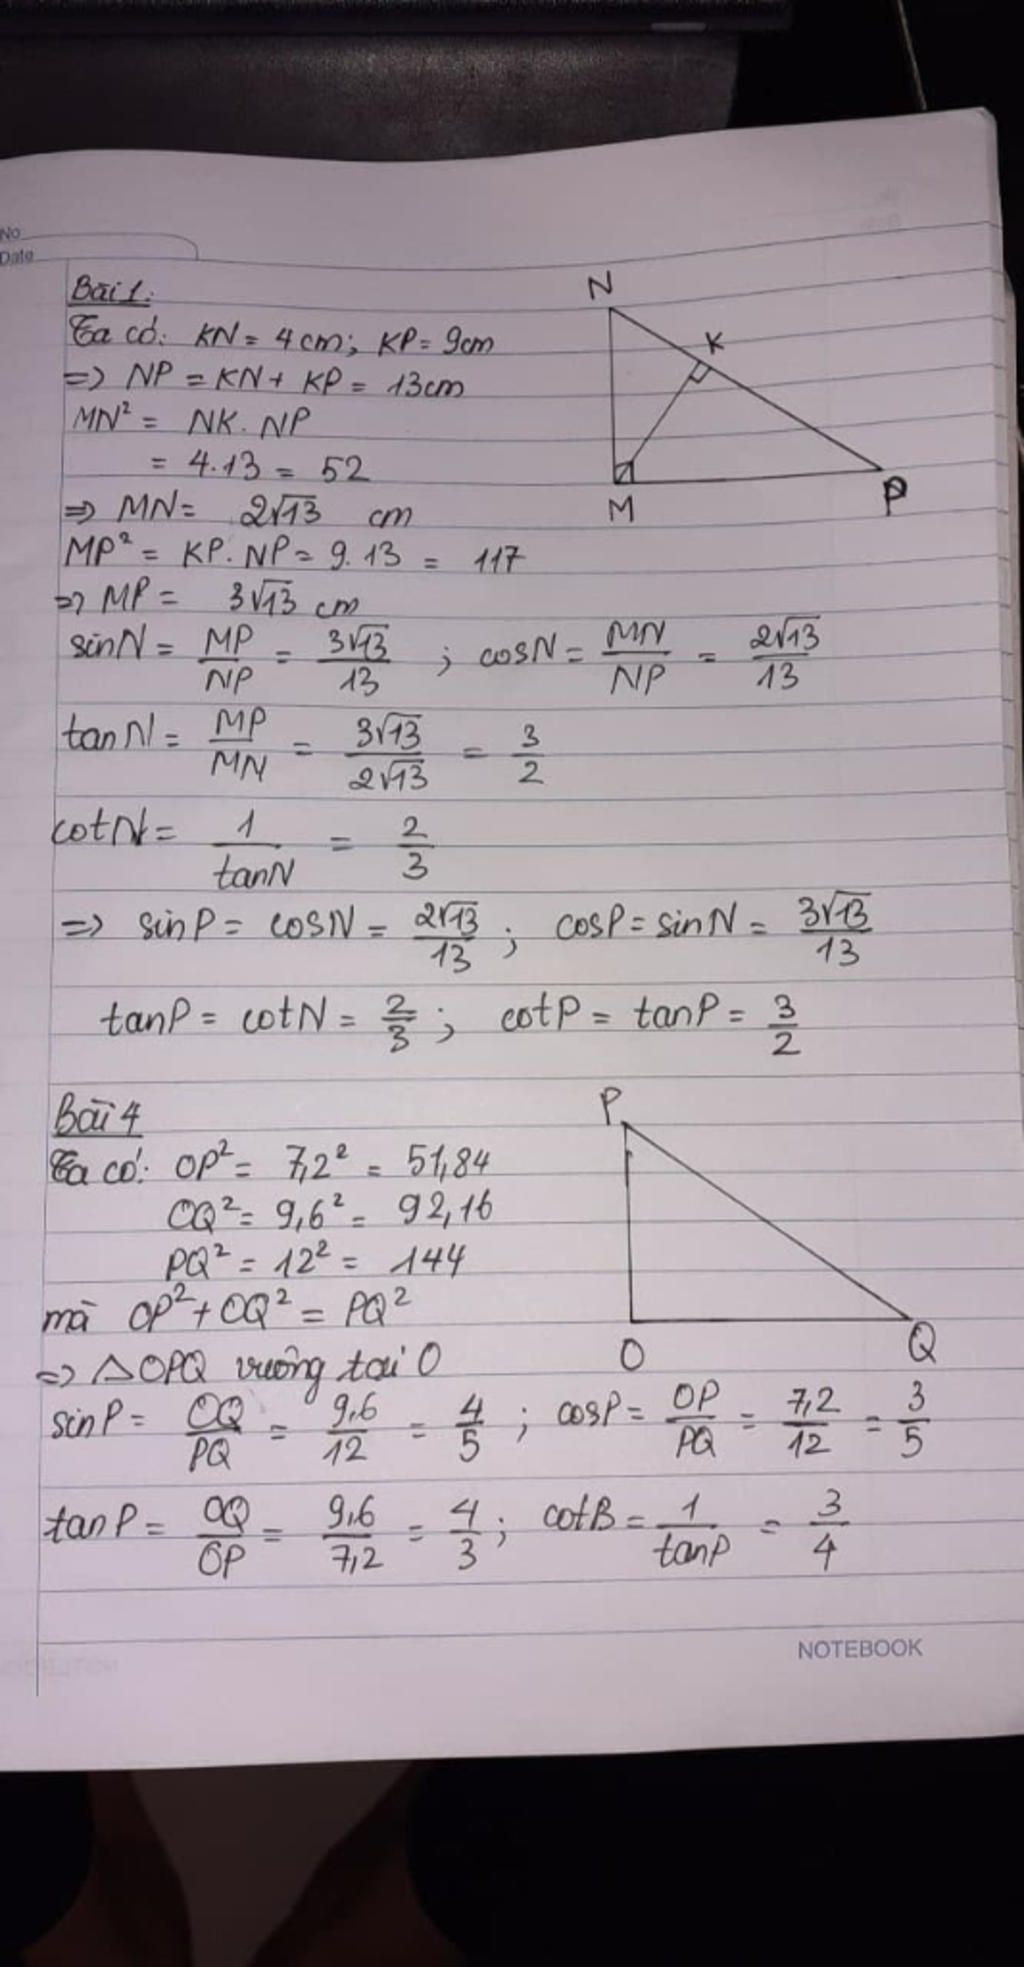 No
Date
Bài 1:
Ta có: KN = 4 cm; KP = 9cm
=> NP = KN + KP = 13cm
MN² = NK. NP
= 4.13 = 52
=> MN = 2√13 cm
MP² = KP. NP = 9.13 = 117
=> MP = 3√13 cm
sinN = MP/NP = 3√13/13 ; cosN = MN/NP = 2√13/13
tanN = MP/MN = 3√13/2√13 = 3/2
cotN = 1/tanN = 2/3
=> sinP = cosN = 2√13/13 ; cosP = sinN = 3√13/13
tanP = cotN = 2/3 ; cotP = tanP = 3/2
N
K
M
P
Bài 4
Ta có: OP² = 7,2² = 51,84
OQ² = 9,6² = 92,16
PQ² = 12² = 144
mà OP² + OQ² = PQ²
=> △OPQ vuông tại O
P
O
Q
sinP = OQ/PQ = 9,6/12 = 4/5 ; cosP = OP/PQ = 7,2/12 = 3/5
tanP = OQ/OP = 9,6/7,2 = 4/3 ; cotB = 1/tanP = 3/4
NOTEBOOK